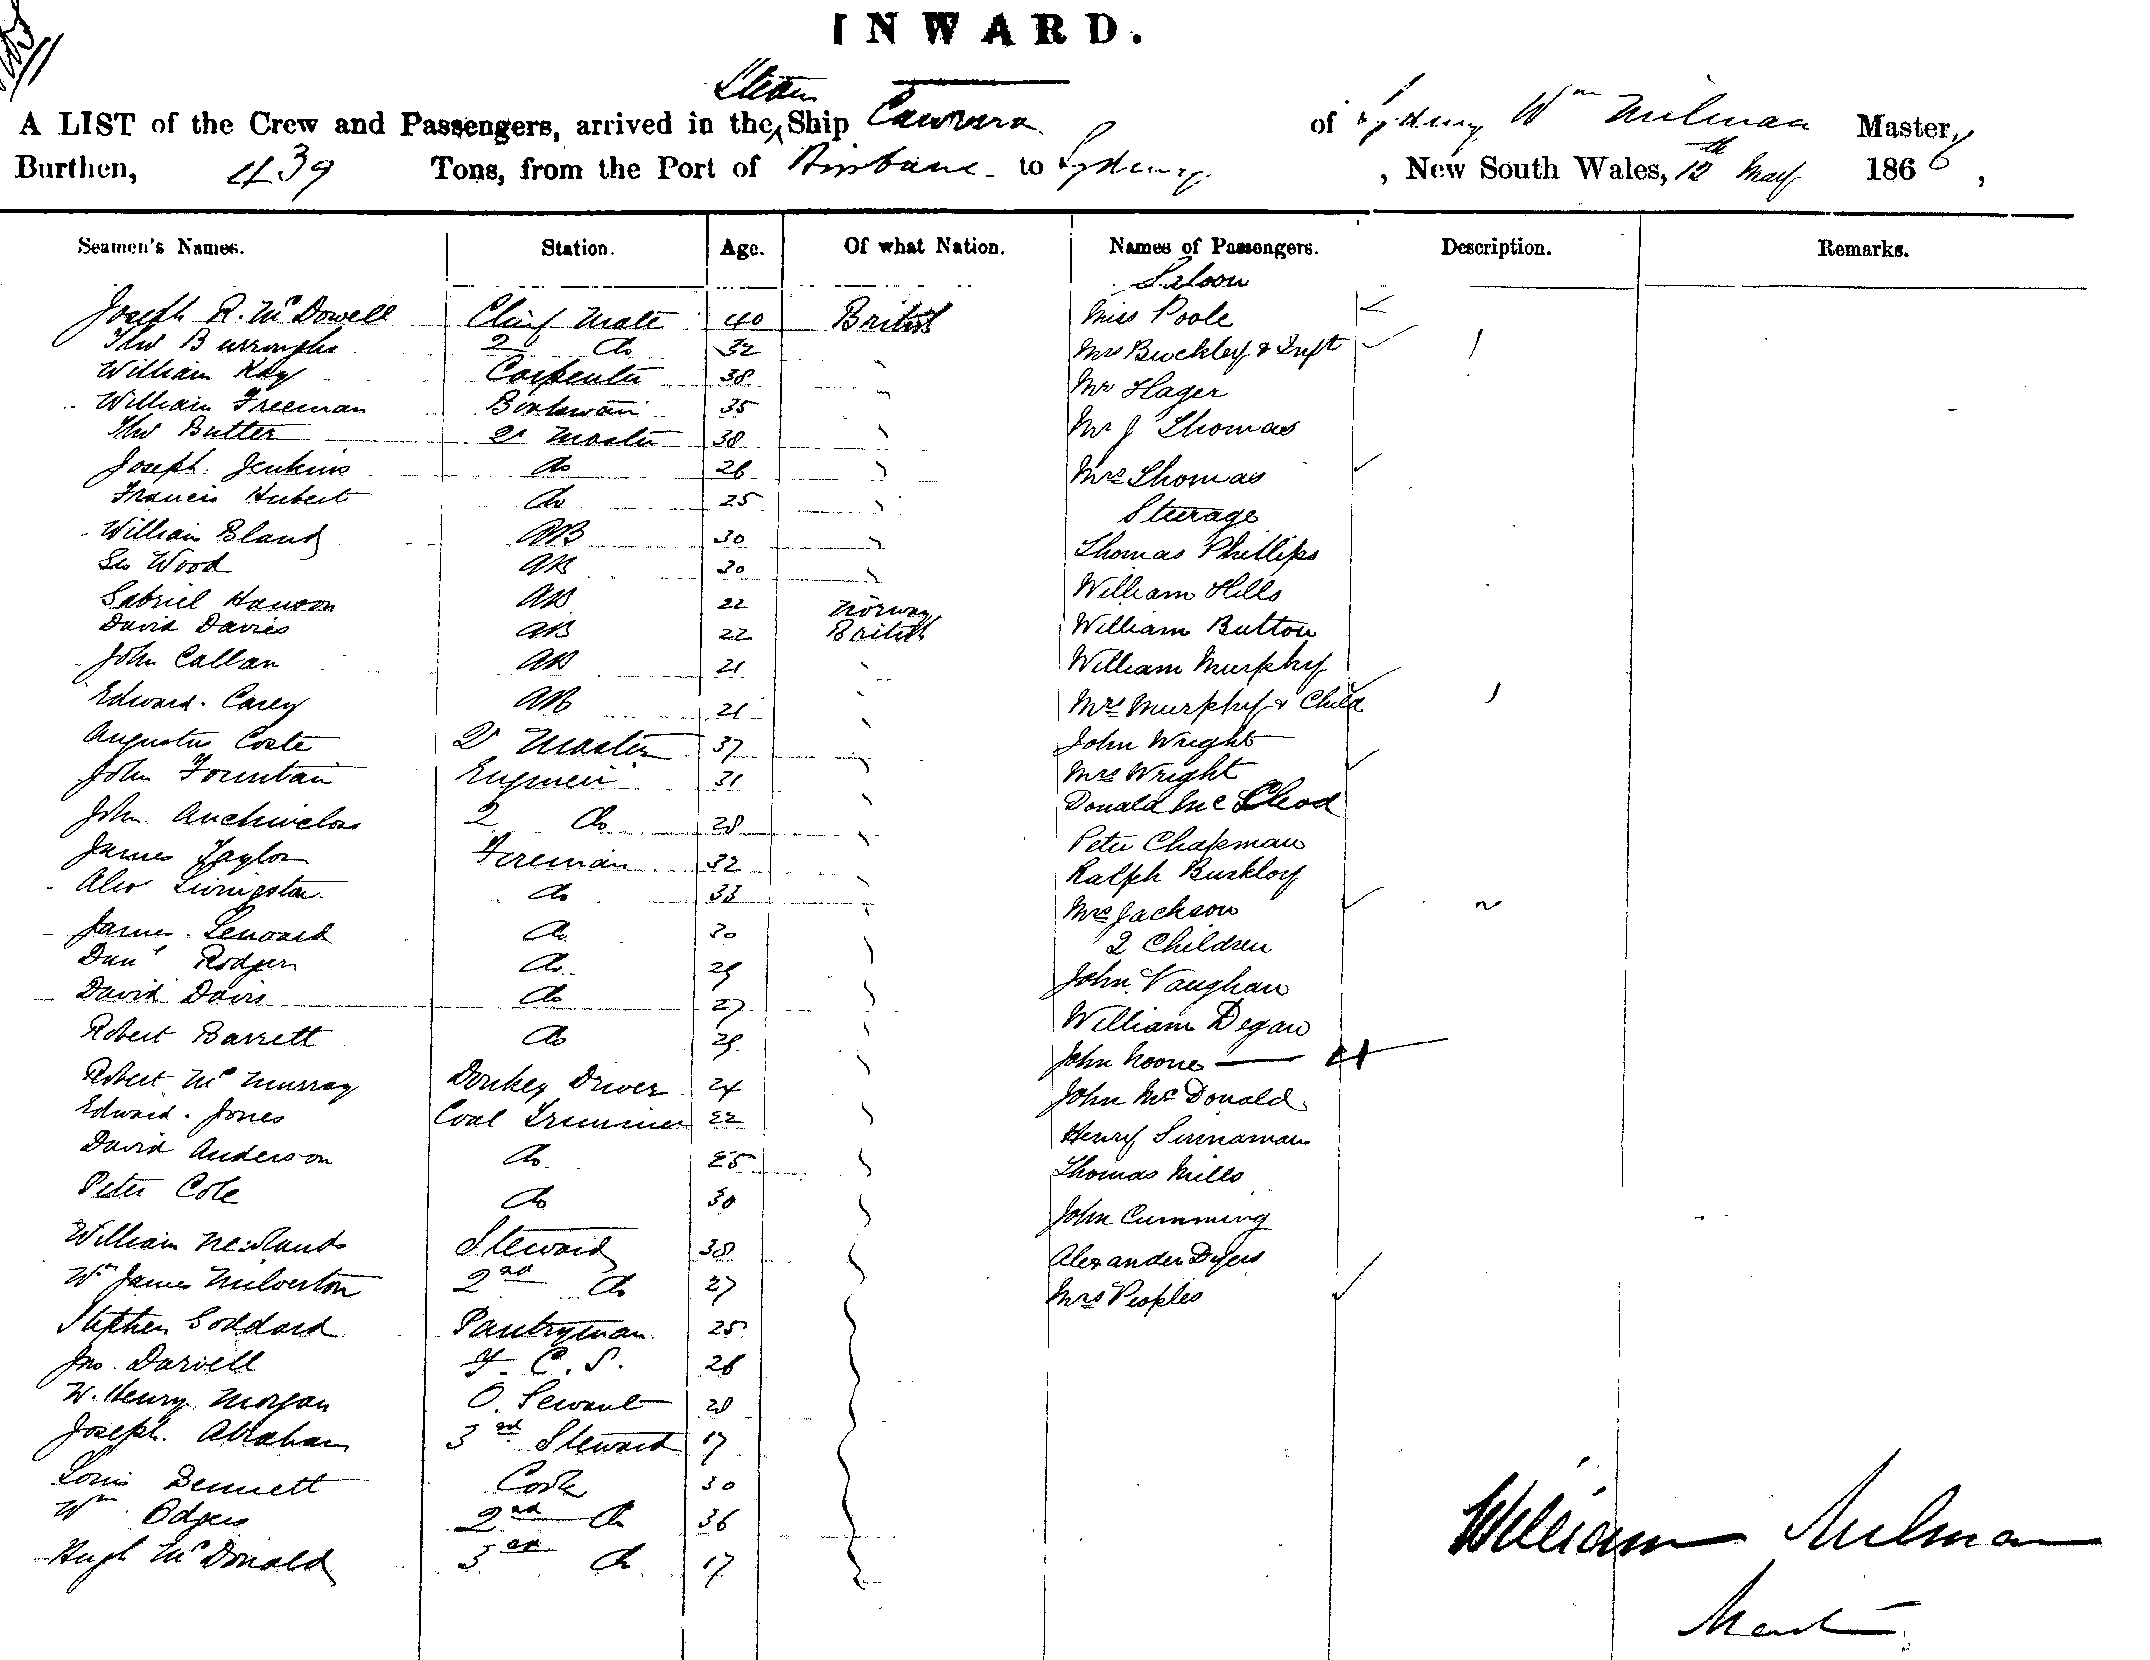 INWARD.
Steam
A LIST of the Crew and Passengers, arrived in the Ship Cawarra of Sydney Wm Milman Master,
Burthen, 439 Tons, from the Port of Brisbane to Sydney, New South Wales, 12th May 1866,
Seamen's Names. Station. Age. Of what Nation. Names of Passengers. Description. Remarks.
Saloon
Joseph R. McDowell Chief Mate 40 British Miss Poole
Thos Burroughs 2 Do 32 Mrs Buckley & Inft 1
William Kay Carpenter 38 Mr Hager
William Freeman Boatswain 35 Mr J Thomas
Thos Butter Qr Master 38
Joseph Jenkins Do 26 Mrs Thomas
Francis Hubert Do 25 Steerage
William Bland AB 30 Thomas Phillips
Geo Wood AB 30 William Hills
Gabriel Hanson AB 22 Norway
David Davies AB 22 British William Button
John Callan AB 21 William Murphy
Edward Carey AB 21 Mrs Murphy & Child 1
Augustus Coste Qr Master 37 John Wright
John Fountain Engineer 31 Mrs Wright
John 2 Do 28 Donald McCleod
James Taylor Fireman 32 Peter Chapman
Alex Livingston Do 33 Ralph
James Lenoard Do 30 Mrs Jackson
2 Children
Danl Rodgers Do 29 John Vaughan
David Davis Do 27 William Degan
Robert Barrett Do 29 John Noone
Robert McMurray Donkey Driver 24 John McDonald
Edward Jones Coal Trimmer 22 Henry Sinnaman
David Anderson Do 25 Thomas Mills
Peter Cole Do 30 John Cumming
William Neilands Steward 38 Alexander Dyers
Wm James Milverton 2nd Do 27 Mrs Peoples
Stephen Goddard Pantryman 25
Jno. Darvell F. C. S. 26
W. Henry Morgan O. Servant 28
Joseph Abraham 3rd Steward 17
Louis Bennett Cook 30
Wm Odgers 2nd Do 36
Hugh McDonald 3rd Do 17
William Milman
Master